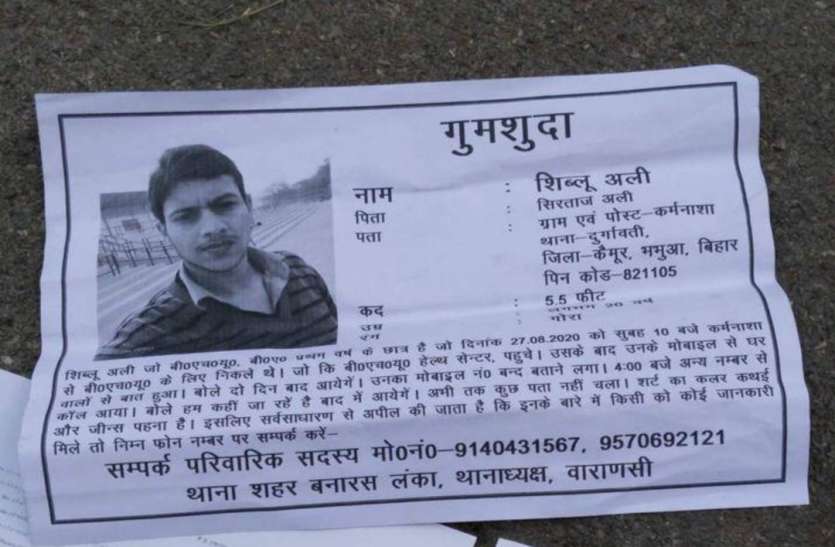 गुमशुदा
नाम : शिब्लू अली
पिता : सिरताज अली
पता : ग्राम एवं पोस्ट–कर्मनाशा
थाना–दुर्गावती,
जिला–कैमूर, भभुआ, बिहार
पिन कोड–821105
कद : 5.5 फीट
उम्र : लगभग 20 वर्ष
रंग गोरा
शिब्लू अली जो बी०एच०यू०, बी०ए० प्रथम वर्ष के छात्र है जो दिनांक 27.08.2020 को सुबह 10 बजे कर्मनाशा
से बी०एच०यू० के लिए निकले थे। जो कि बी०एच०यू० हेल्थ सेन्टर, पहुचे। उसके बाद उनके मोबाइल से घर
वालों से बात हुआ। बोले दो दिन बाद आयेगें। उनका मोबाइल नं० बन्द बताने लगा। 4:00 बजे अन्य नम्बर से
कॉल आया। बोले हम कहीं जा रहें है बाद में आयेगें। अभी तक कुछ पता नहीं चला। शर्ट का कलर कथई
और जीन्स पहना है। इसलिए सर्वसाधारण से अपील की जाता है कि इनके बारे में किसी को कोई जानकारी
मिले तो निम्न फोन नम्बर पर सम्पर्क करें–
सम्पर्क परिवारिक सदस्य मो०नं०–9140431567, 9570692121
थाना शहर बनारस लंका, थानाध्यक्ष, वाराणसी